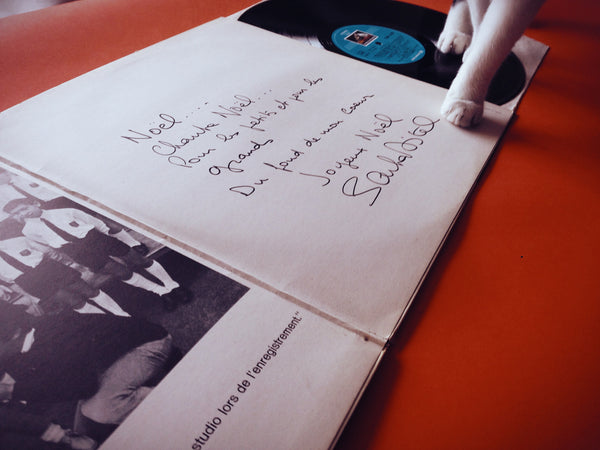 Noël....
Chante Noël...
Pour les petits et pour les
grands
Du fond de mon coeur
Joyeux Noël
studio lors de l'enregistrement."